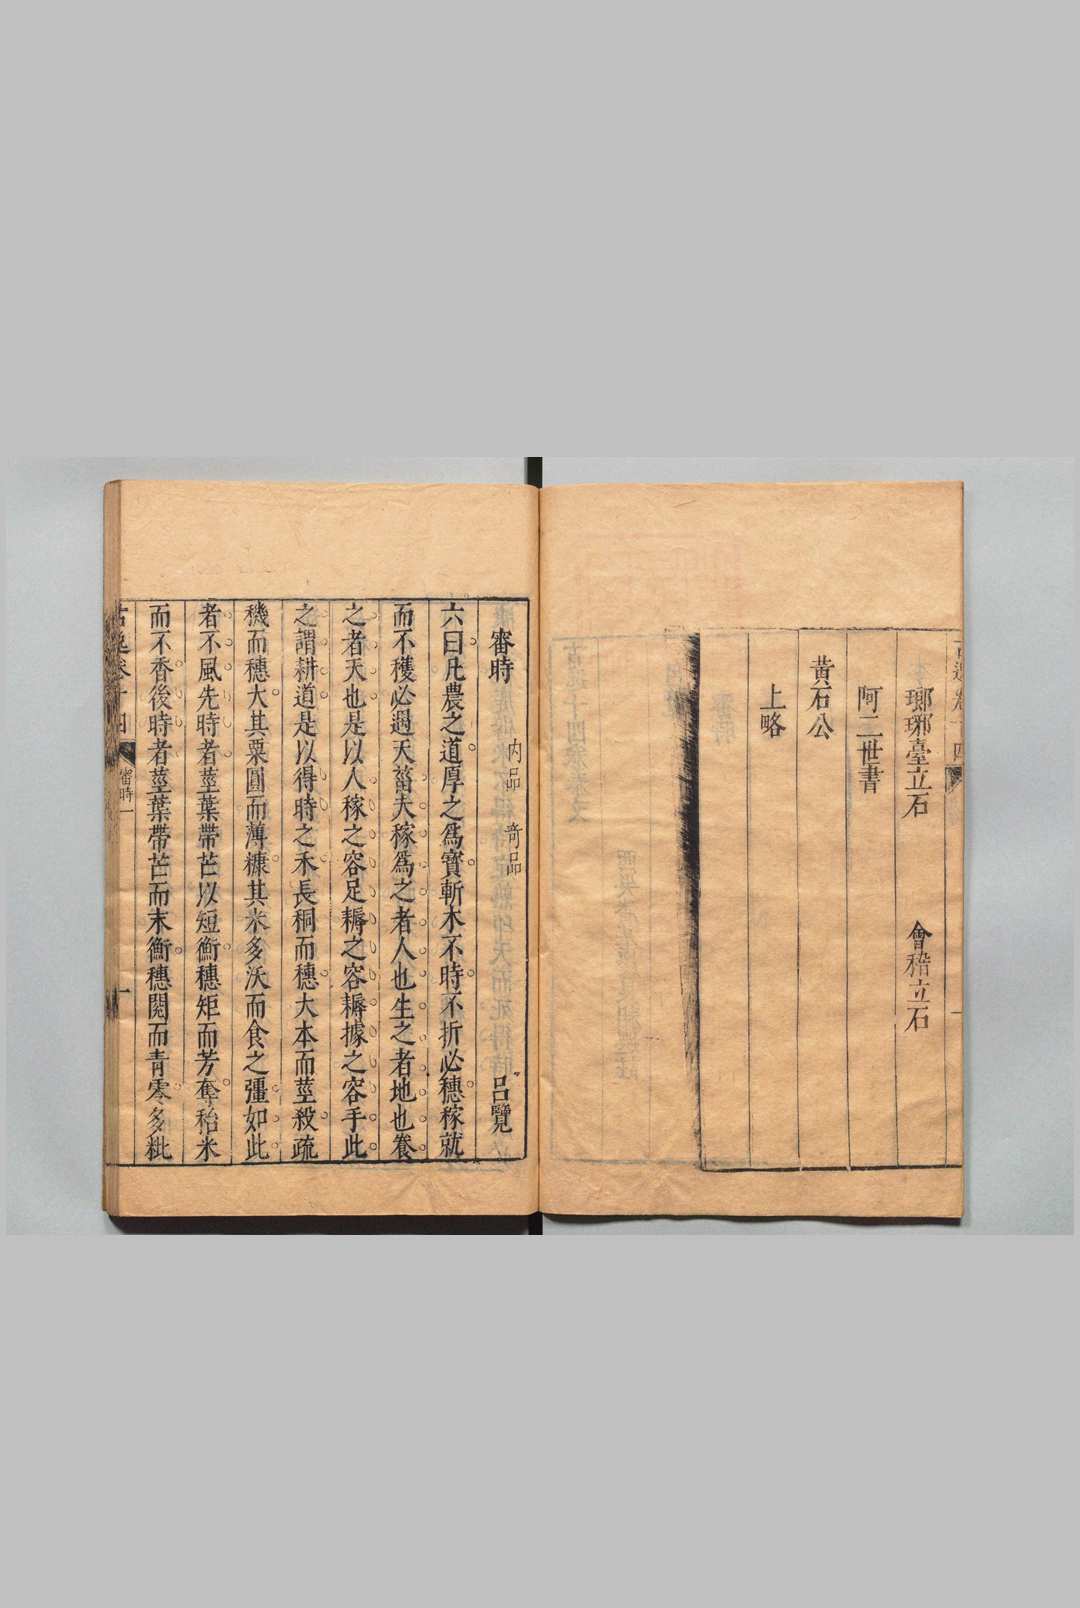 古逸卷十四
瑯琊臺立石 會稽立石
阿二世書
黃石公
上略
審時 內品 奇品 呂覽
六曰凡農之道厚之爲寶斬木不時不折必穗稼就
而不穫必遇天菑夫稼爲之者人也生之者地也養
之者天也是以人稼之容足耨之容耨據之容手此
之謂耕道是以得時之禾長秱而穗大本而莖殺疏
穖而穗大其粟圓而薄糠其米多沃而食之彊如此
者不風先時者莖葉帶芒以短衡穗矩而芳奪秮米
而不香後時者莖葉帶芒而末衡穗閱而青零多粃
古逸卷十四 審時一 一